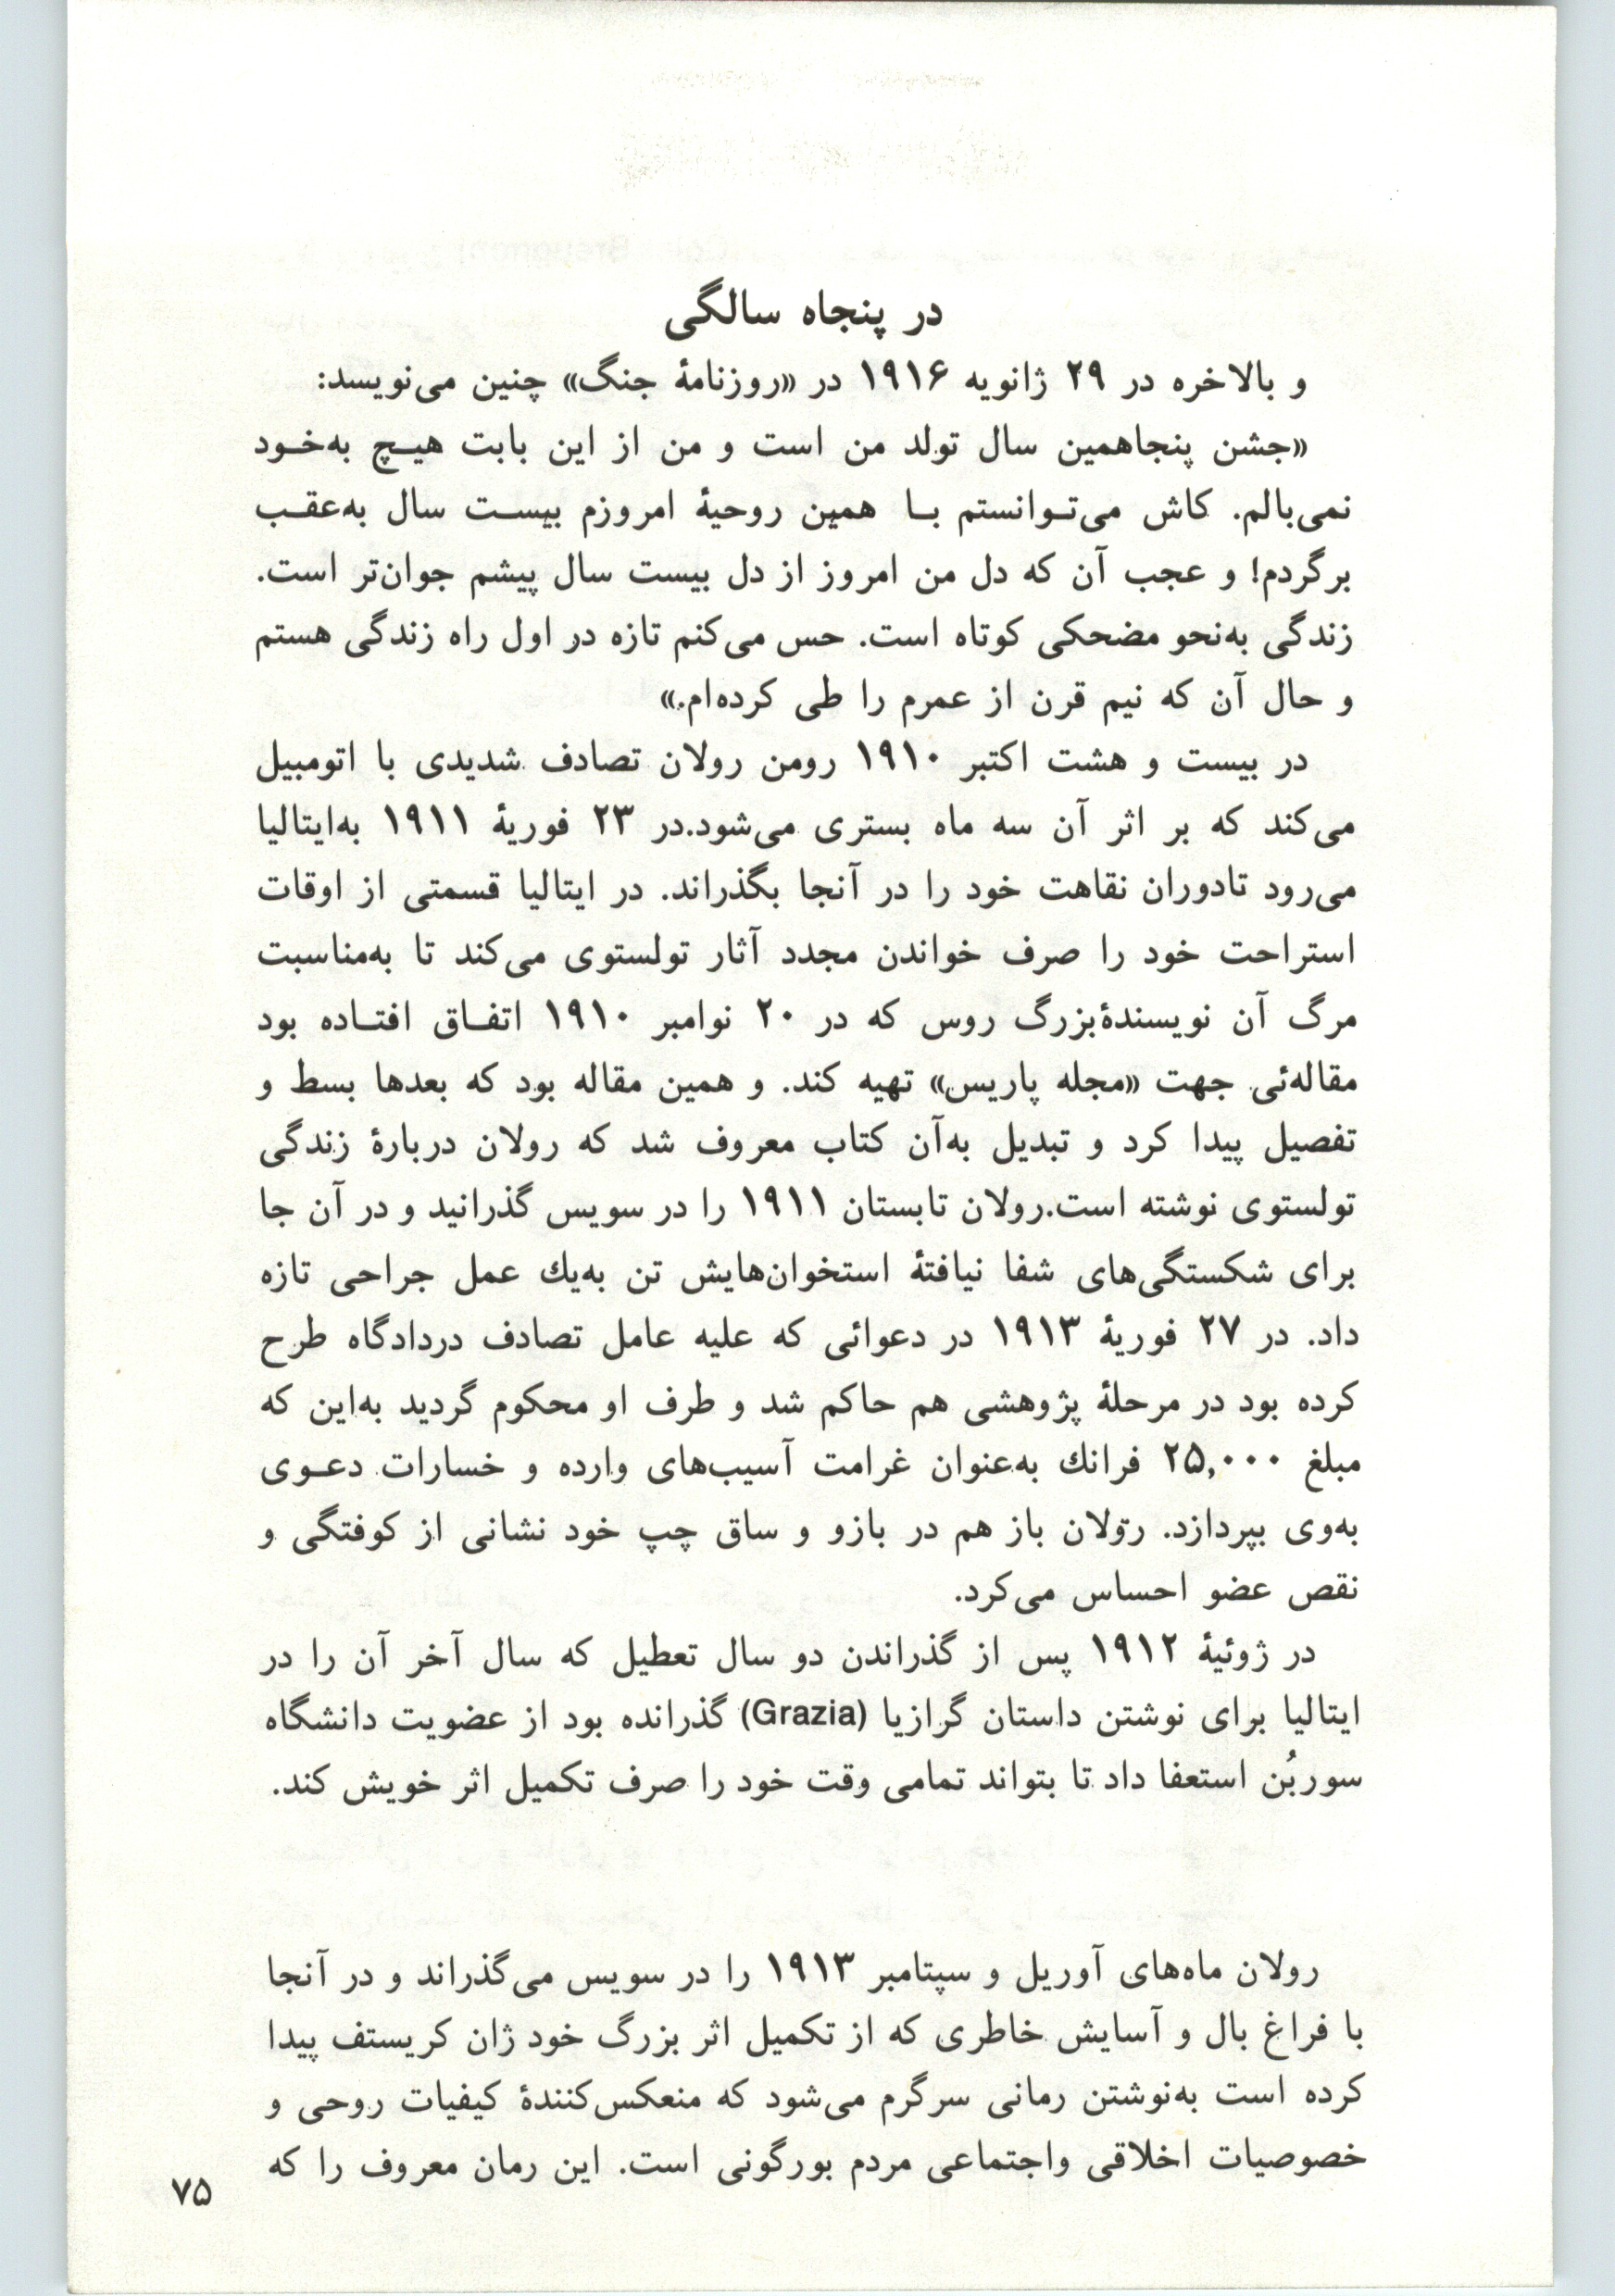 در پنجاه سالگی
و بالاخره در ۲۹ ژانویه ۱۹۱۶ در «روزنامهٔ جنگ» چنین می‌نویسد:
«جشن پنجاهمین سال تولد من است و من از این بابت هیـچ به‌خـود
نمی‌بالم. کاش می‌تـوانستم بـا همین روحیهٔ امروزم بیسـت سال به‌عقـب
برگردم! و عجب آن که دل من امروز از دل بیست سال پیشم جوان‌تر است.
زندگی به‌نحو مضحکی کوتاه است. حس می‌کنم تازه در اول راه زندگی هستم
و حال آن که نیم قرن از عمرم را طی کرده‌ام.»
در بیست و هشت اکتبر ۱۹۱۰ رومن رولان تصادف شدیدی با اتومبیل
می‌کند که بر اثر آن سه ماه بستری می‌شود.در ۲۳ فوریهٔ ۱۹۱۱ به‌ایتالیا
می‌رود تادوران نقاهت خود را در آنجا بگذراند. در ایتالیا قسمتی از اوقات
استراحت خود را صرف خواندن مجدد آثار تولستوی می‌کند تا به‌مناسبت
مرگ آن نویسندهٔ‌بزرگ روس که در ۲۰ نوامبر ۱۹۱۰ اتفـاق افتـاده بود
مقاله‌ئی جهت «مجله پاریس» تهیه کند. و همین مقاله بود که بعدها بسط و
تفصیل پیدا کرد و تبدیل به‌آن کتاب معروف شد که رولان دربارهٔ زندگی
تولستوی نوشته است.رولان تابستان ۱۹۱۱ را در سویس گذرانید و در آن جا
برای شکستگی‌های شفا نیافتهٔ استخوان‌هایش تن به‌یك عمل جراحی تازه
داد. در ۲۷ فوریهٔ ۱۹۱۳ در دعوائی که علیه عامل تصادف دردادگاه طرح
کرده بود در مرحلهٔ پژوهشی هم حاکم شد و طرف او محکوم گردید به‌این که
مبلغ ۲۵,۰۰۰ فرانك به‌عنوان غرامت آسیب‌های وارده و خسارات دعـوی
به‌وی بپردازد. رولان باز هم در بازو و ساق چپ خود نشانی از کوفتگی و
نقص عضو احساس می‌کرد.
در ژوئیهٔ ۱۹۱۲ پس از گذراندن دو سال تعطیل که سال آخر آن را در
ایتالیا برای نوشتن داستان گرازیا (Grazia) گذرانده بود از عضویت دانشگاه
سوربُن استعفا داد تا بتواند تمامی وقت خود را صرف تکمیل اثر خویش کند.
رولان ماه‌های آوریل و سپتامبر ۱۹۱۳ را در سویس می‌گذراند و در آنجا
با فراغ بال و آسایش خاطری که از تکمیل اثر بزرگ خود ژان کریستف پیدا
کرده است به‌نوشتن رمانی سرگرم می‌شود که منعکس‌کنندهٔ کیفیات روحی و
خصوصیات اخلاقی واجتماعی مردم بورگونی است. این رمان معروف را که
۷۵